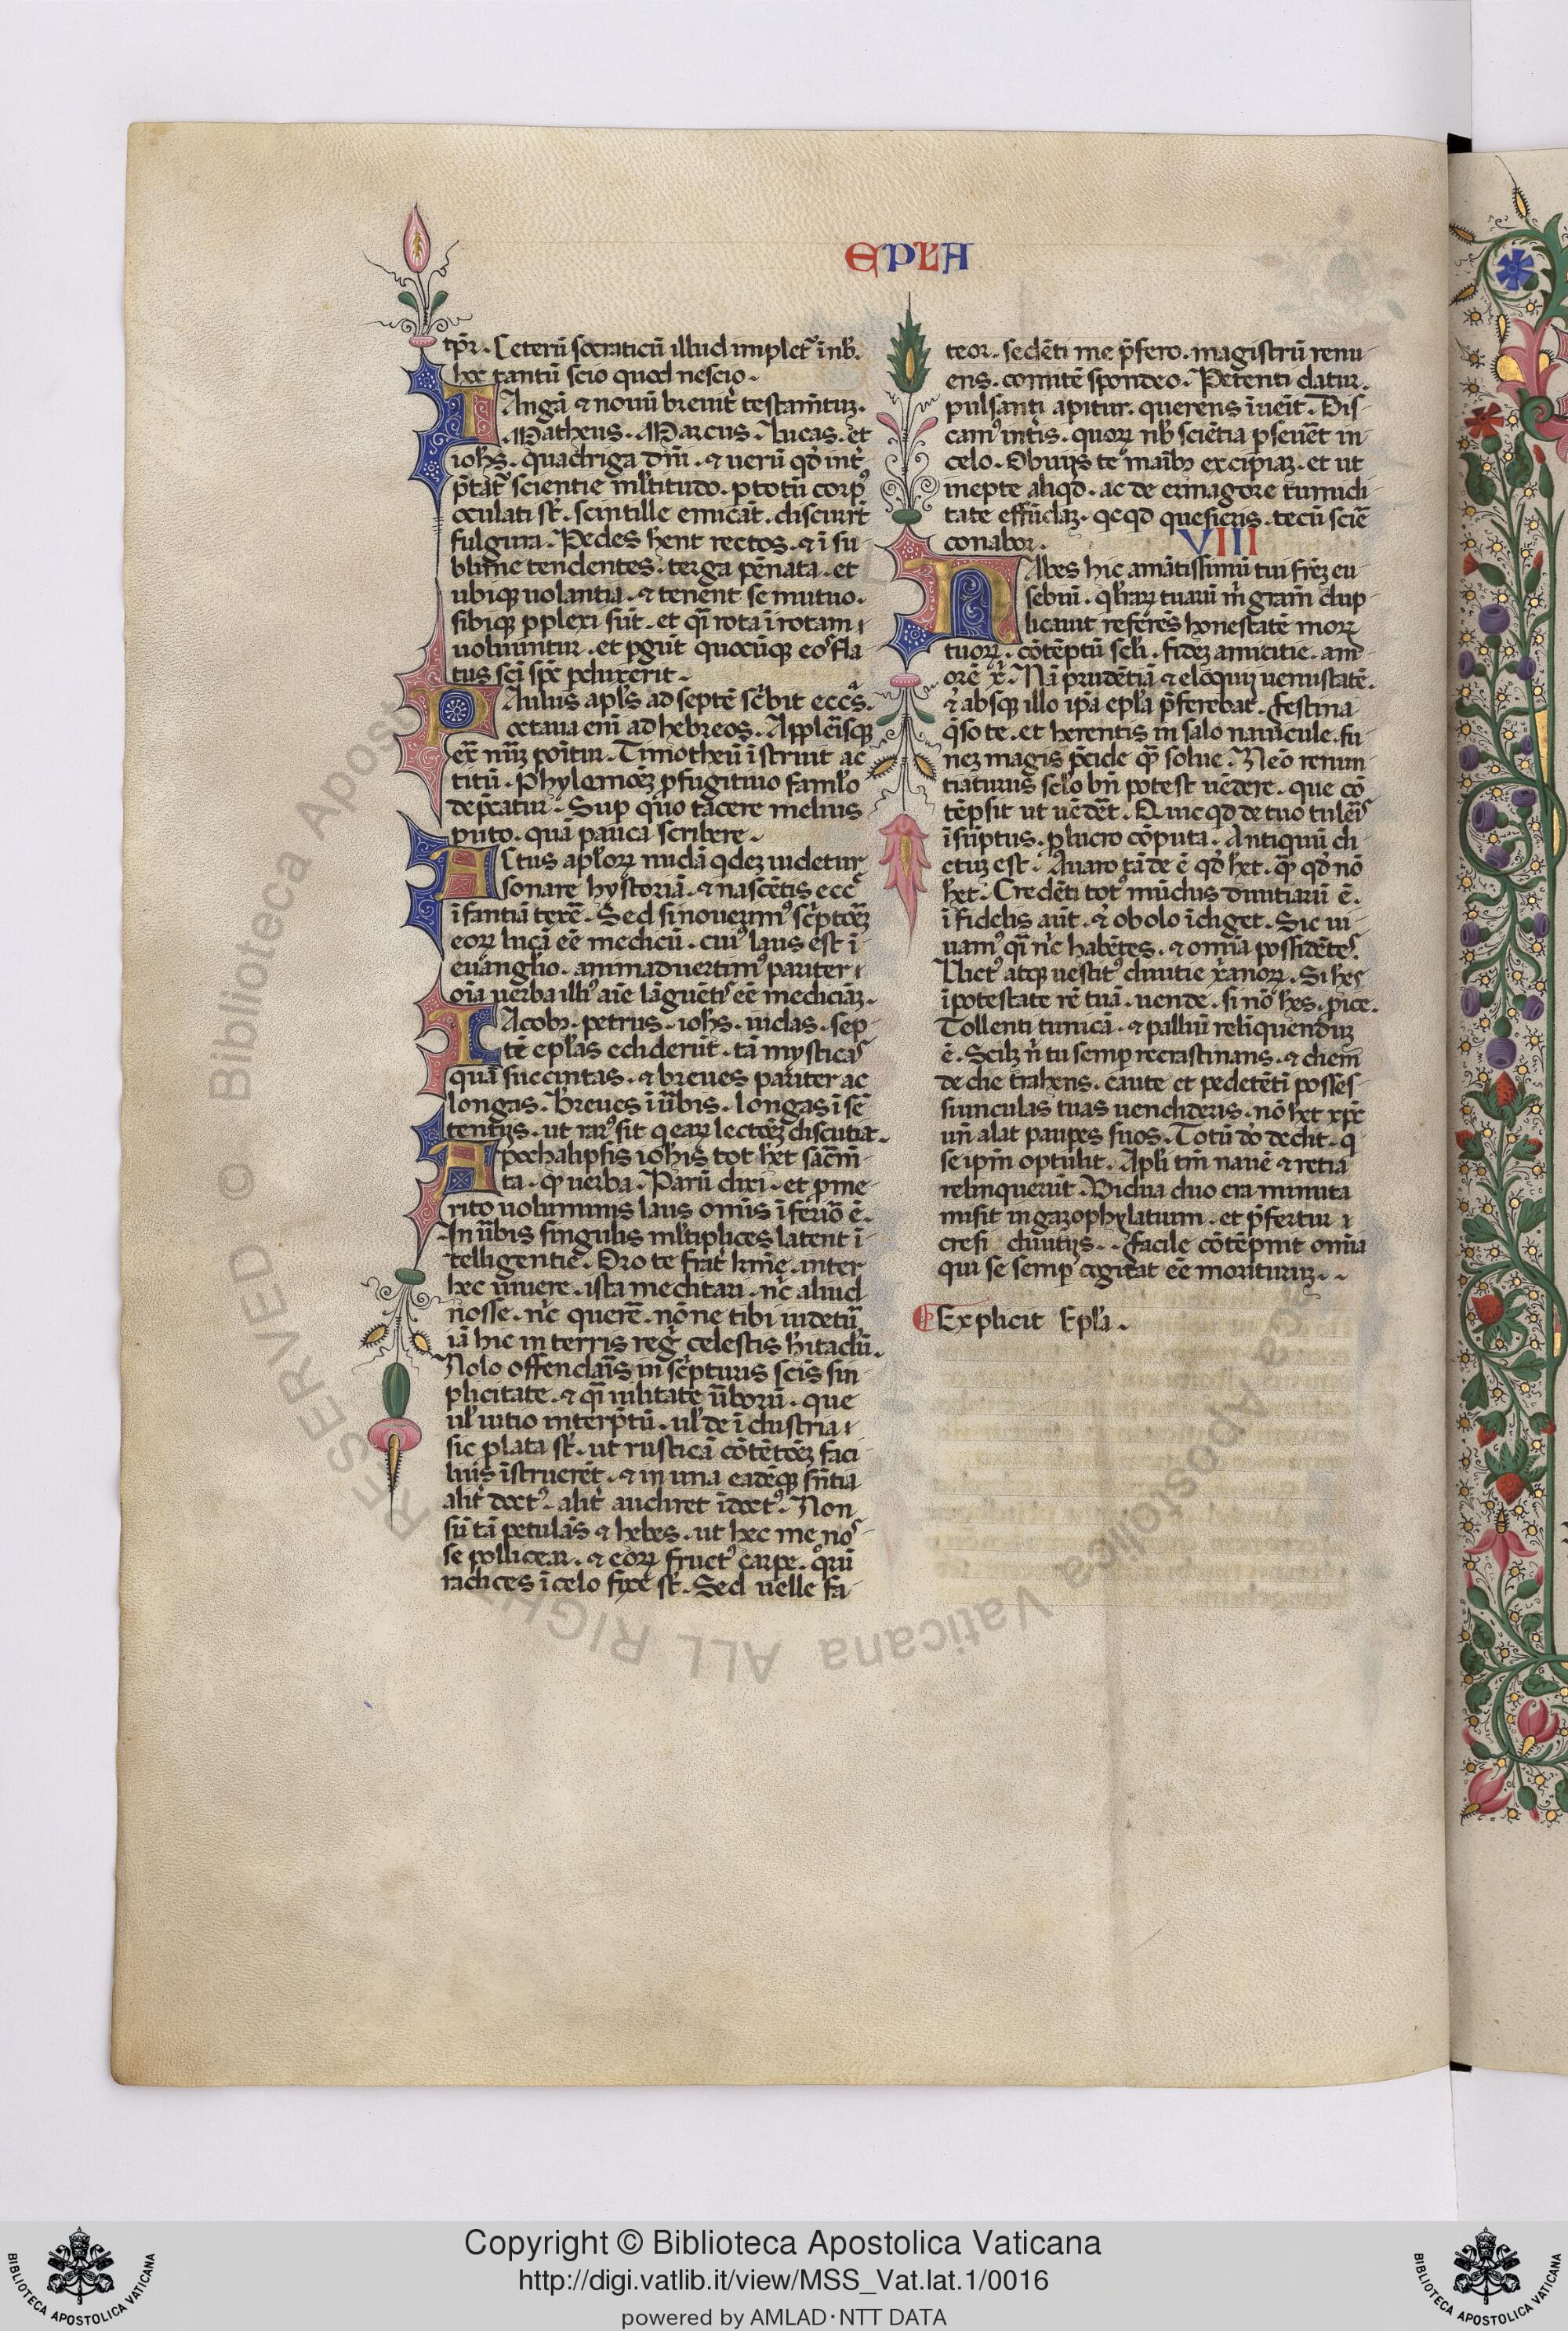 EPLA
tp̄r. Ceterū socraticū illud impletᷣ ī nb̄.
hoc tantū scio quod nescio.
TAngā & nouū breuit̾ testam̄tuȝ.
Matheus. Marcus. Lucas. et
ioħs. quadriga dn̄i. & uerū qđ int̾
p̄tat̾ scientie ml̄titudo. p totū corpꝰ
oculati st̄. scintille emicāt. discurrt̄
fulgura. Pedes hent rectos. & ī su
blime tendentes. terga pēnata. et
ubiqꝫ uolantia. & tenent se mutuo.
sibiqꝫ pplexi sūt. et q̄i rota ī rotam
uoluuntur. et pgūt quocūqꝫ eoſ fla
tus sc̄i sp̄c pduxerit.
PAulus apl̄s ad septē sc̄bit ecc̄s.
octaua enī ad hebreos. A ppleisqꝫ
ex̄ nūȝ poītur. Timotheū īstruit ac
titū. Phylomōeȝ p fugitiuo faml̄o
dep̄catur. Sup quo tacere melius
puto. quā pauca scribere.
ACtus apl̄oꝝ nudā qdeȝ uidetur
sonare hystoriā. & nascētis ecc̄
īfantiā texē. Sed si nouerīmꝰ sc̄ptōeȝ
eoꝝ lucā eē medicū. cuiꝰ laus est ī
euāngl̄io. animaduertimꝰ pariter
oīa uerba illiꝰ aīe lāguētiſ eē mediciāȝ.
IAcobꝰ. petrus. ioħs. iudas. sep
tē epl̄as ediderūt. tā mysticaſ
quā succintas. & breues pariter ac
longas. breues ī ūbis. longas ī sē
tentijs. ut rarꝰ sit q eaꝝ lectōeȝ discutiat.
APochalipsis ioħis tot hȝ̄t sacm̄
ta. qͥ uerba. Parū dixi. et p me
rito uoluminis laus omīs īferiō ē.
In ūbis singulis ml̄tiplices latent ī
telligentie. Oro te frat̾ kmē. inter
hec uiuere. ista meditari. nc̄ aliud
nosse. nc̄ querē. nōne tibi uidetū
iā hic in terris reg̾ celestis hitaclū.
Nolo offendaīs in sc̄pturis sc̄is sin
plicitate. & q̄i uilitate ūborū. que
ul̄ uitio interp̄tū. ul̄ de īdustria
sic plata st̄. ut rusticā cōtētōeȝ faci
lius īstruerēt. & in una eadēqꝫ sn̄tia
alit̾ doctꝰ. alit̾ audiret īdoctꝰ. Non
sū tā petulās & hebes. ut hec me noſ
se pollicear. & eoꝝ fructꝰ carpe. qͦrū
radices ī celo fixe st̄. Sed uelle fa
teor. sedēti me p̄fero. magistrū renu
ens. comitē spondeo. Petenti datur.
pulsanti apitur. querens īueīt. Dis
camꝰ in t̄ris. quoꝝ nb̄ sciētia pseuēt in
celo. Obuijs te maībꝰ excipiaȝ. et ut
inepte aliqđ. ac de ermagore tumidi
tate effūdaȝ. qcqđ quesieris. tecū scīē
conabor.
VIII
HAbes hic amātissimū tui fr̄eȝ eu
sebiū. q lr̄aꝝ tuarū m̄ grām dup
licauit referēs honestatē moꝝ
tuoꝝ. cōtēptū scl̄i. fideȝ amicitie. am
orē xp̄i. Nā prudētiā & eloquij uenustatē.
& absqꝫ illo ip̄a epl̄a p̄ferebat. Festina
q̄so te. et herentis in salo nauicule. fu
neȝ magis p̄cide qꝫ solue. Nēo renun
tiaturus scl̄o bn̄ potest uēdere. que cō
tēpsit ut uēdēt. Quicqđ de tuo tuleīſ
īsūptus. p lucro cōputa. Antiquū di
ctuȝ est. Auaro tā de ē qđ hȝ̄t. qͥ qđ nō
hȝ̄t. Credēti tot mūdus diuitiarū ē.
īfidelis aūt. & obolo īdiget. Sic ui
uamꝰ q̄i nc̄ habētes. & omīa possidēteſ.
Uictꝰ atqꝫ uestitꝰ diuitie xp̄ianoꝝ. Si heſ
ī potestate rē tuā. uende. si nō hes. p̄ice.
Tollenti tunicā. & palliū relīquenduȝ
ē. Scilȝ n̄ tu semp recrastinans. & diem
de die trahens. caute et pedetēti posses
siunculas tuas uendideris. nō hȝt xp̄c
un̄ alat paupes suos. Totū dō dedit. q
se ip̄m optulit. Apl̄i tm̄ nauē & retia
relinquerūt. Vidua duo era minuta
misit in gazophylatium. et p̄fertur
cresi diuitijs. Facile cōtēpnit omīa
qui se semp cogitat eē moriturūȝ.
Explicit Epl̄a.
Copyright © Biblioteca Apostolica Vaticana
http://digi.vatlib.it/view/MSS_Vat.lat.1/0016
powered by AMLAD·NTT DATA
BIBLIOTECA APOSTOLICA VATICANA
BIBLIOTECA APOSTOLICA VATICANA
© Biblioteca Apostolica Vaticana ALL RIGHTS RESERVED